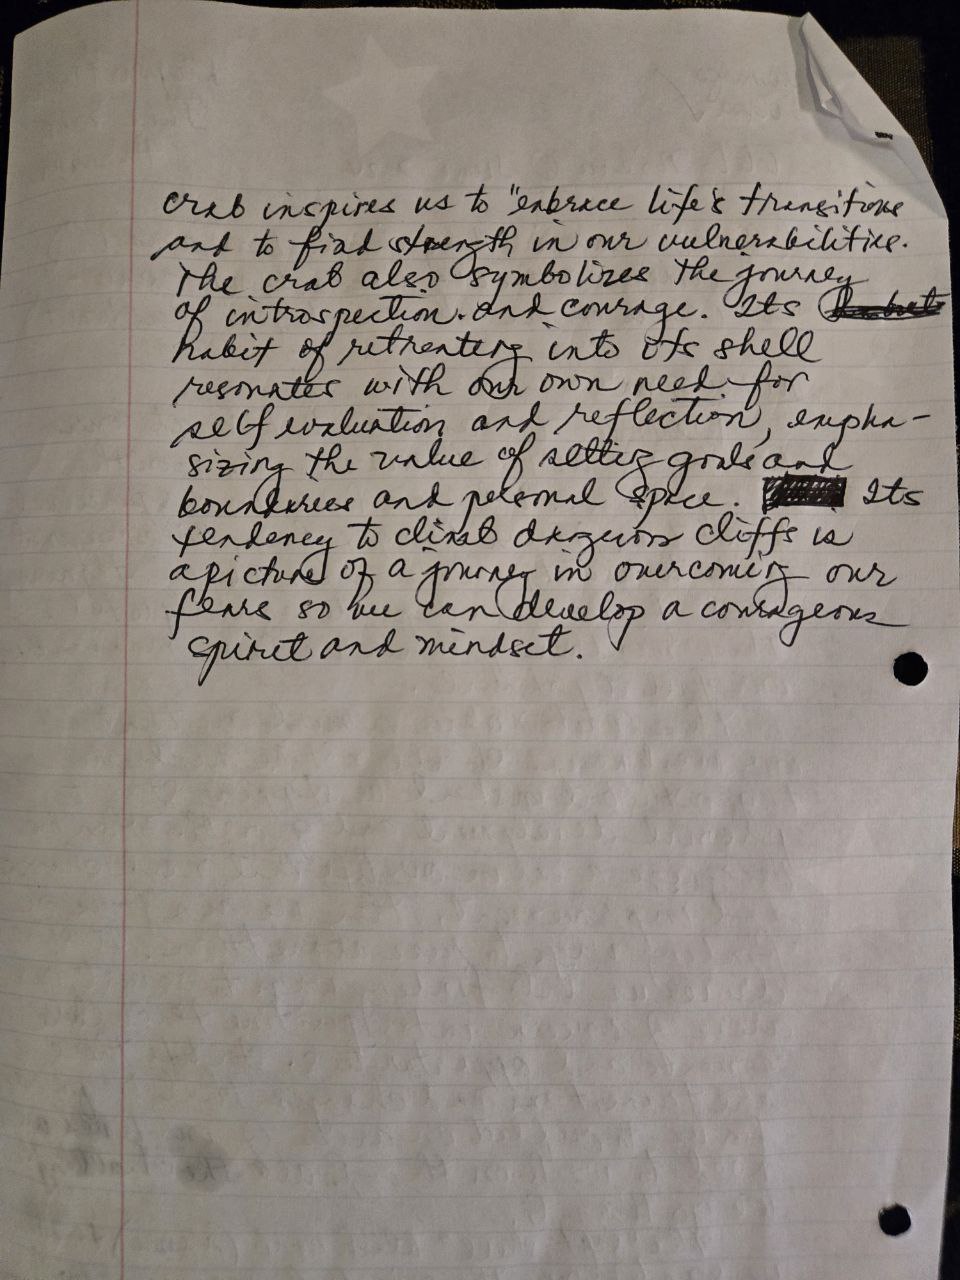 crab inspires us to "enbrace life's transitions
and to find strength in our vulnerabilities.
The crab also symbolizes the journey
of introspection. and courage. Its
habit of retreating into its shell
resonates with our own need for
self evaluation and reflection, empha-
sizing the value of setting goals and
boundaries and personal space. Its
tendency to climb dangerous cliffs is
a picture of a journey in overcoming our
fears so we can develop a courageous
spirit and mindset.